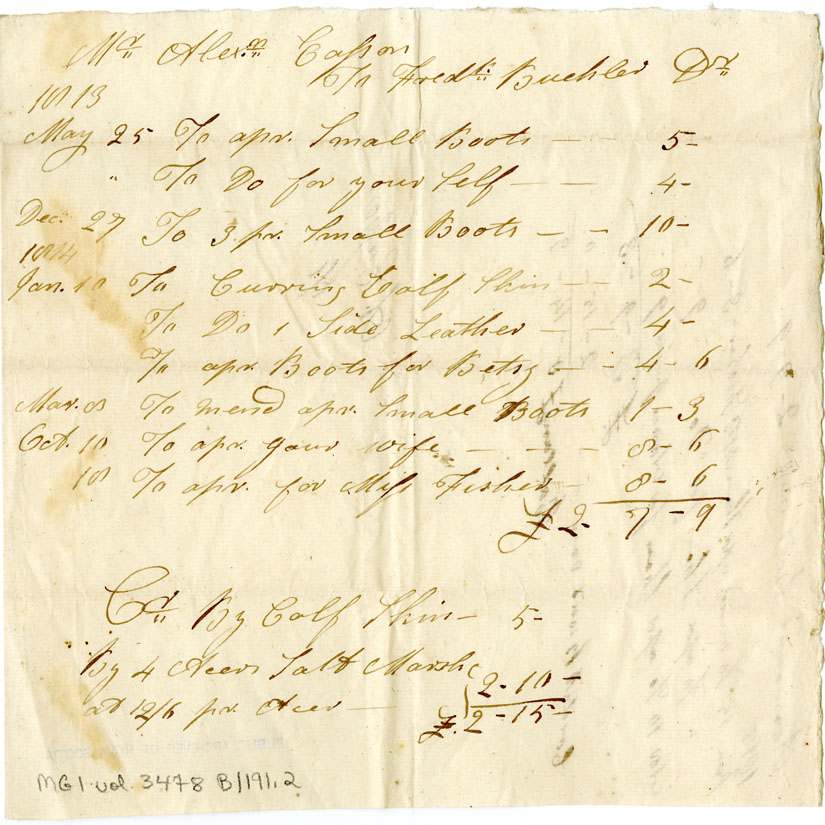 Mr. Alexr. Casson
To Fredk. Buehler Dr.
1813
May 25 To apr. Small Boots — — 5 -
" To Do for your Self — — 4 -
Dec. 27 To 3 pr. Small Boots — — 10 -
1814
Jan. 10 To Curring Calf Skin — — 2 -
To Do 1 Side Leather — — 4 -
To apr Boots for Betsy — — 4 - 6
Mar. 8 To mend apr. Small Boots 1 - 3
Oct. 10 To apr. your wife — — — 8 - 6
18 To apr. for Miss Fisher — 8 - 6
£ 2 - 7 - 9
Cr. By Calf Skin — 5 -
By 4 Acers Salt Marsh
2 - 10 -
at 12/6 pr. Acer —
£ 2 - 15 -
PUBLIC ARCHIVES OF NOVA SCOTIA
MG 1 vol. 3478 B/191.2